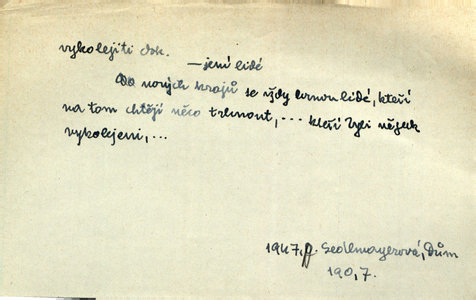 vykolejiti dok.
—jení lidé
Do nových krajů se vždy hrnou lidé, kteří
na tom chtějí něco trhnout, ... kteří byli nějak
vykolejeni, ...
1947, A. Sedlmayerová, Dům
190, 7.